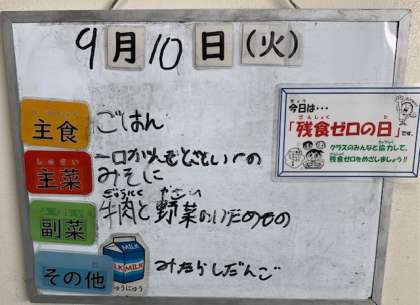 9月10日(火)
今日は…
きょう
ざんしょく
「残食ゼロの日」です
クラスのみんなと協力して、
残食ゼロをめざしましょう!!
主食 ごはん
しゅさい
主菜
みそに
副菜 牛肉と野菜のいためもの
やさい
MILK
MILK MILK
ぎゅうにゅう
その他 みたらしだんご